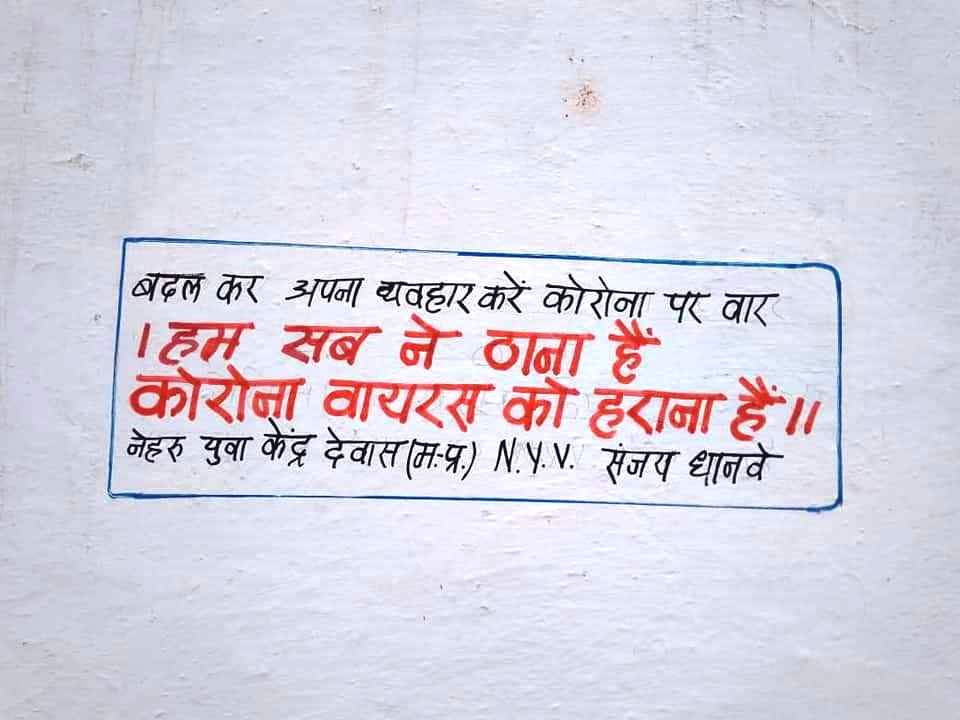 बदल कर अपना व्यवहार करें कोरोना पर वार
। हम सब ने ठाना हैं
कोरोना वायरस को हराना हैं ॥
नेहरु युवा केंद्र देवास (म.प्र.) N.Y.V. संजय धानवे